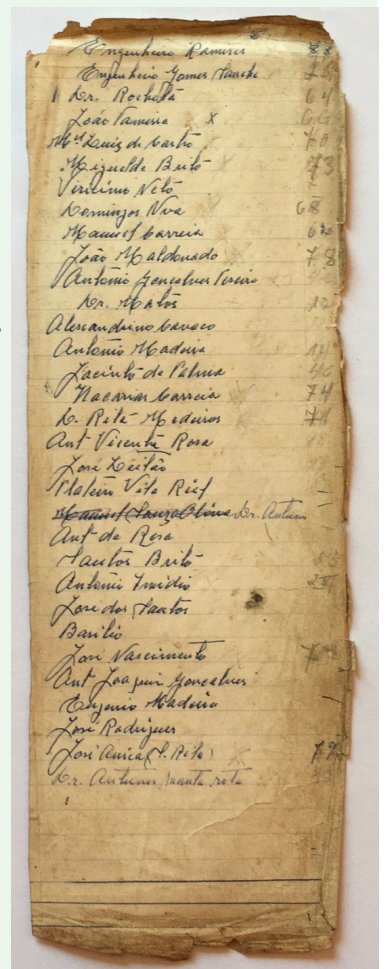 Engenheiro Ramires 88
Engenheiro Gomes Sancho 75
Dr. Rocheta 64
João Vamessa X 66
Mel Luiz de Castro 70
Miguel de Brito 73
Viricimo Neto
Domingos Viva 68
Manuel Correia 620
João Maldonado 78
António Gonçalves Pereira
Dr. Matos 12
Alexandrino Cavaco
António Madeira 14
Jacinto de Palma 46
Nacarias Correia 74
D. Rita Medeiros 71
Ant Vicente Rosa
José Leitão
Vila
Dr. Antunes
Ant da Rosa
Santos Brito
António
José dos Santos
Basilio
José Nascimento
Ant Joaquim Gonçalves
Eugenio Madeira
José Rodrigues
José (S. Rita) 79
Dr. Antunes, manta rota